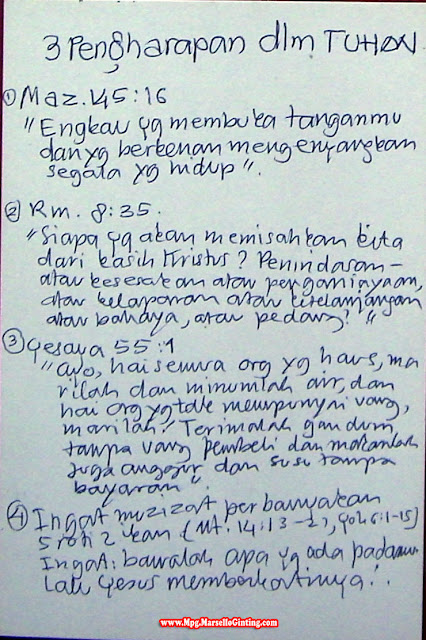 3 Pengharapan dlm TUHAN
① Maz. 145:16
"Engkau yg membuka tanganmu
dan yg berkenan mengenyangkan
segala yg hidup".
② Rm. 8:35.
"Siapa yg akan memisahkan kita
dari kasih Kristus? Penindasan-
atau kesesakan atau penganiayaan,
atau kelaparan atau ketelanjangan
atau bahaya, atau pedang?"
③ Yesaya 55:1
"Ayo, hai semua org yg haus, ma
rilah dan minumlah air, dan
hai org yg tdk mempunyai uang,
marilah! Terimalah gandum
tanpa uang pembeli dan makanlah
juga anggur dan susu tanpa
bayaran".
④ Ingat muzizat perbanyakan
5 roti 2 ikan (Mt. 14:13-21, Yoh 6:1-15)
Ingat: bawalah apa yg ada padamu
lalu Yesus memberkatinya!..
www.Mpg.MarselloGinting.com